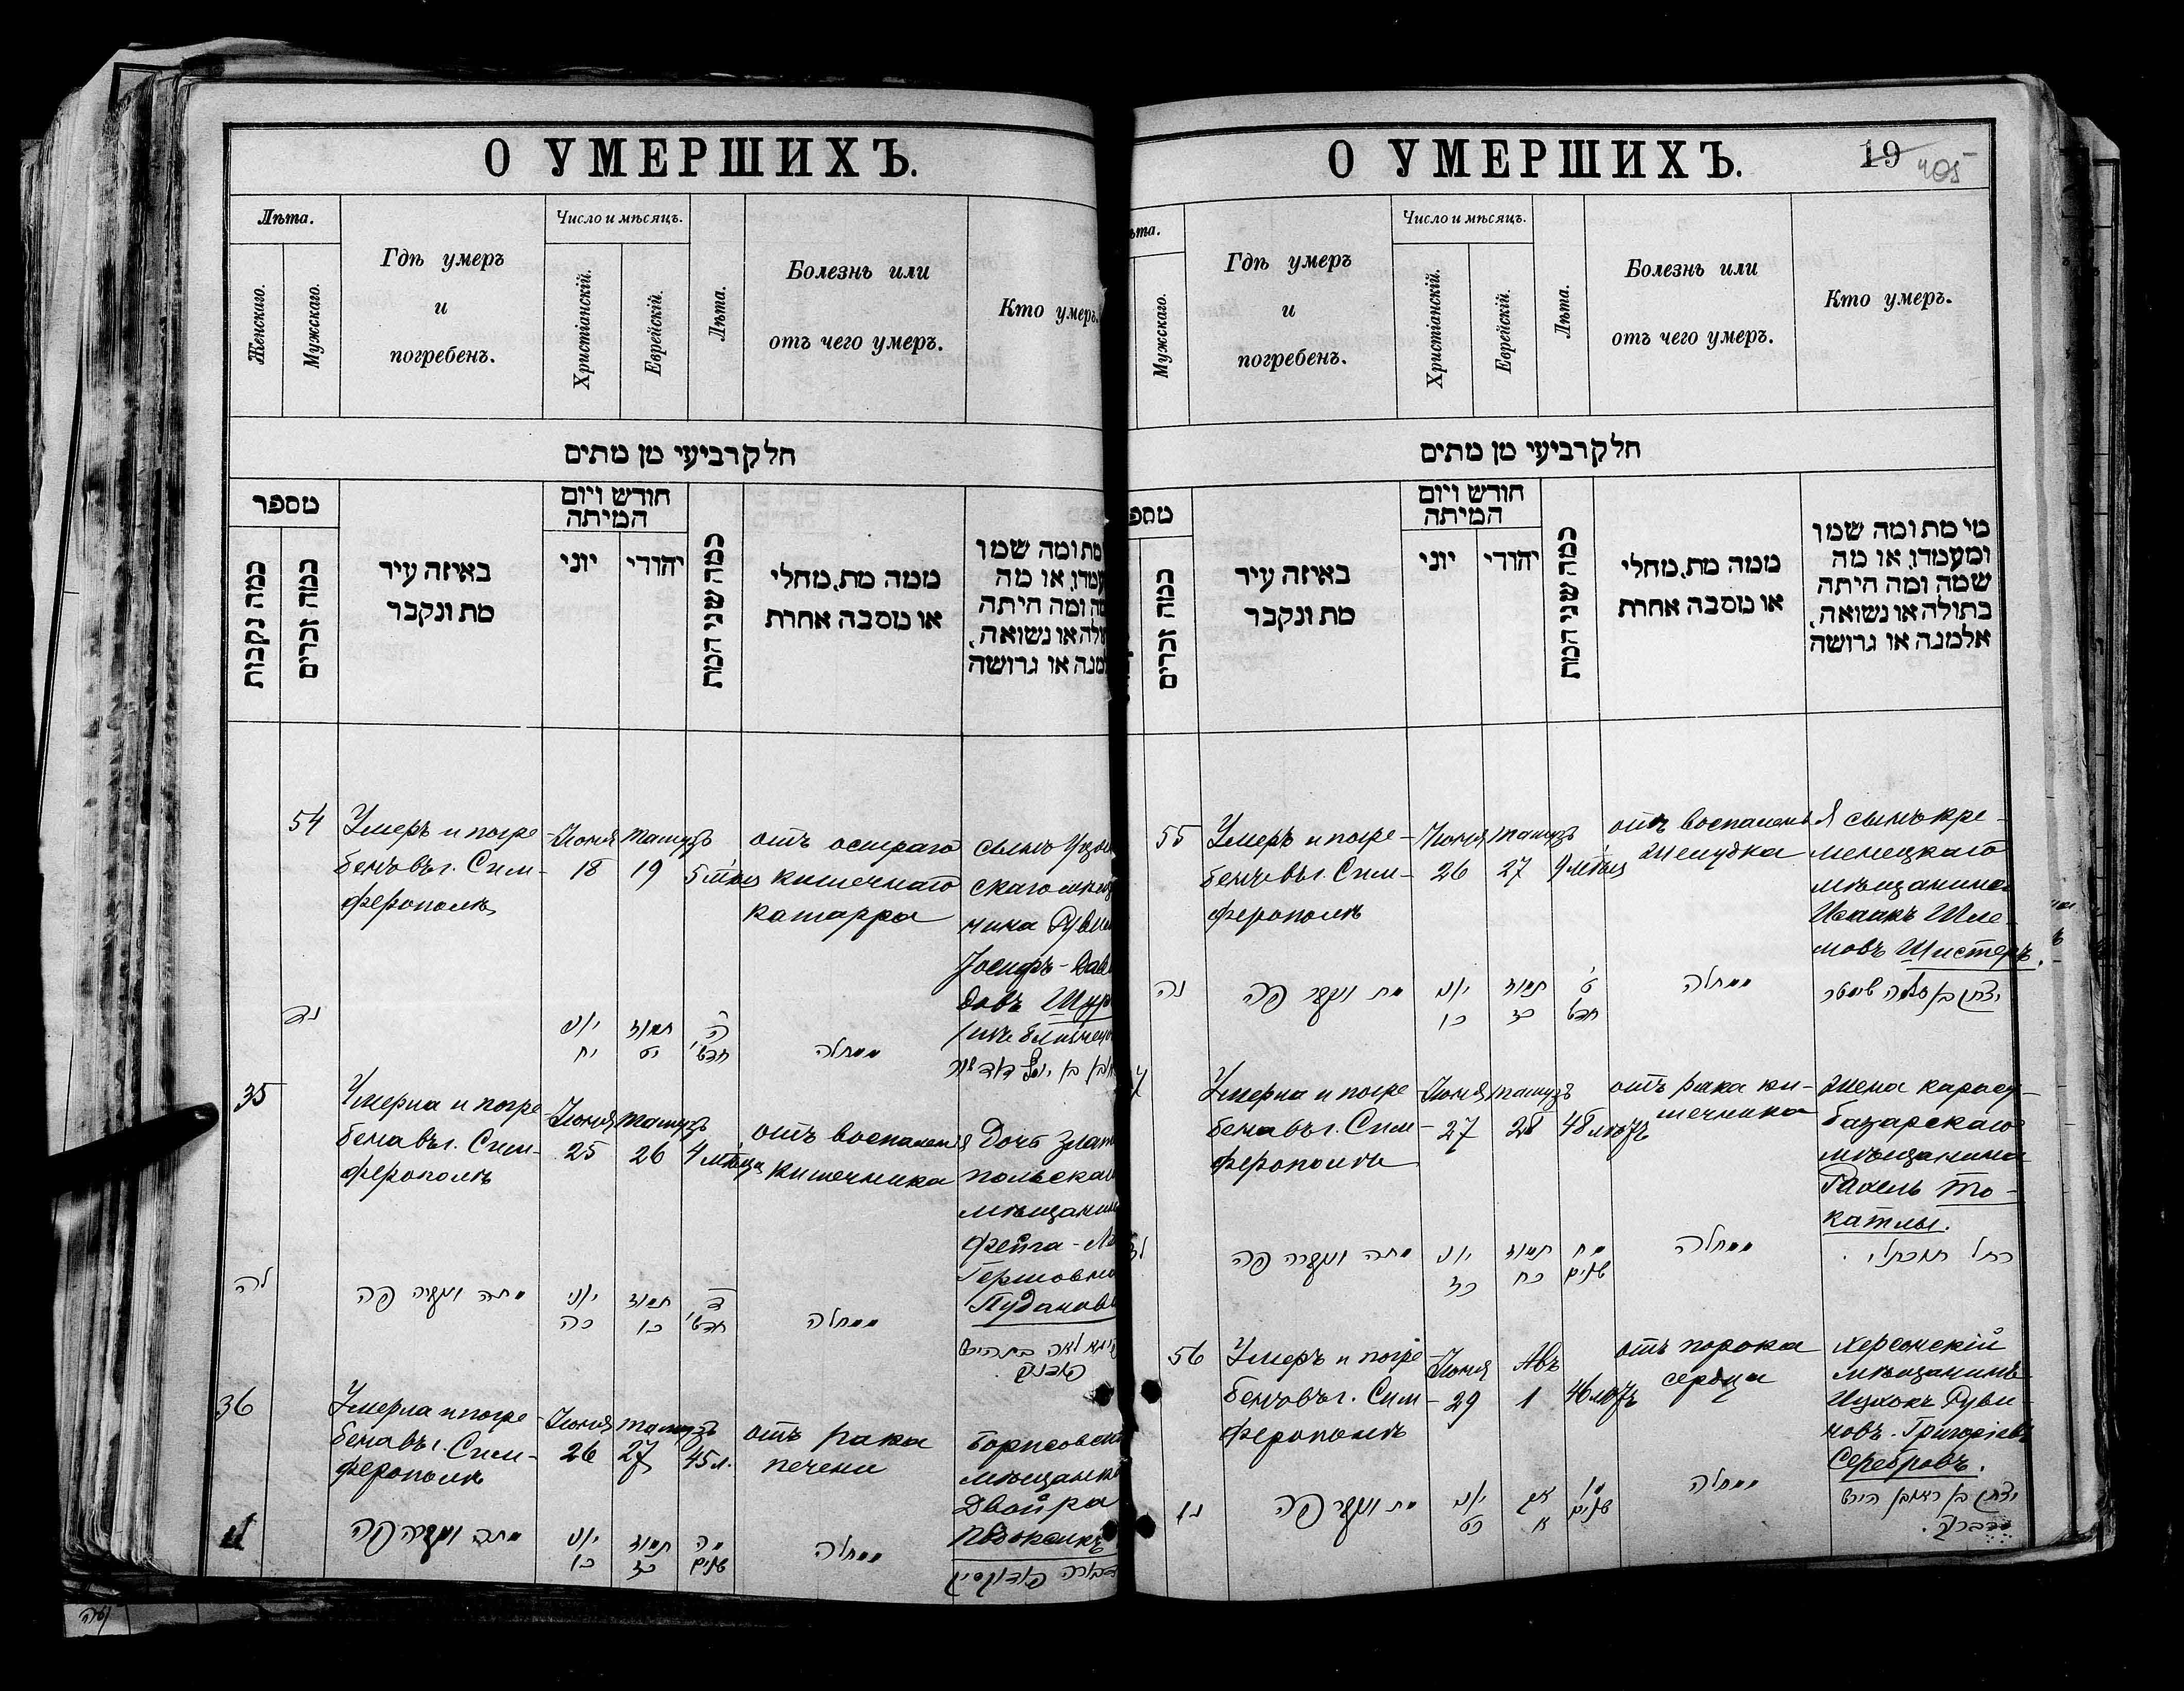 О УМЕРШИХЪ.
Лѣта.
Женскаго.
Мужскаго.
Гдѣ умеръ
и
погребенъ.
Число и мѣсяцъ.
Христіанскій.
Еврейскій.
Лѣта.
Болезнь или
отъ чего умеръ.
Кто умеръ.
חלק רביעי מן מתים
מספר
כמה נקבות
כמה זכרים
באיזה עיר
מת ונקבר
חודש ויום
המיתה
יוני
יהודי
כמה שני המת
ממה מת, מחלי
או מסבה אחרת
מת ומה שמו
או מה
ומה היתה
או נשואה,
או גרושה
54
Умеръ и погре-
бенъ въ г. Сим-
ферополѣ
Іюня
18
Тамузъ
19
5 мѣсяц
отъ остраго
кишечнаго
катарра
сынъ
скаго
чина
Іосифъ-Дав
довъ
נד
יוני
יח
תמוז
יט
ה
חדשי
ממחלה
35
Умерла и погре-
бена въ г. Сим-
ферополѣ
Іюня
25
Тамузъ
26
4 мѣсяца
отъ воспаленія
кишечника
Дочь Злат
польскаг
мѣщанин
Фейга-
Гершовна
לה
מתה ונקברה פה
יוני
כה
תמוז
כו
ד
חדשי
ממחלה
36
Умерла и погре-
бена въ г. Сим-
ферополѣ
Іюня
26
Тамузъ
27
45 л.
отъ рака
печени
Борисовск
мѣщанк
Двойра
מתה ונקברה פה
יוני
כו
תמוז
כז
מה
שנים
ממחלה
О УМЕРШИХЪ.
19
405
ѣта.
Мужскаго.
Гдѣ умеръ
и
погребенъ.
Число и мѣсяцъ.
Христіанскій.
Еврейскій.
Лѣта.
Болезнь или
отъ чего умеръ.
Кто умеръ.
חלק רביעי מן מתים
מספ
כמה זכרים
באיזה עיר
מת ונקבר
חודש ויום
המיתה
יוני
יהודי
כמה שני המת
ממה מת, מחלי
או מסבה אחרת
מי מת ומה שמו
ומעמדו, או מה
שמה ומה היתה
בתולה או נשואה,
אלמנה או גרושה
55
Умеръ и погре-
бенъ въ г. Сим-
ферополѣ
Іюня
26
Тамузъ
27
9 мѣсяц
отъ воспаленія
желудка
сынъ кре-
менецкаго
мѣщанина
Исаакъ Шле-
мовъ Шистеръ.
נה
מת ונקבר פה
יוני
כו
תמוז
כז
ט
חדשי
ממחלה
יצחק בן שלמה שיסטר
Умерла и погре
бена въ г. Сим-
ферополѣ
Іюня
27
Тамузъ
28
48 лѣтъ
отъ рака ки-
шечника
жена карасу-
базарскаго
мѣщанина
Рахель То-
катлы.
מתה ונקברה פה
יוני
כז
תמוז
כח
מח
שנים
ממחלה
רחל תוכתלי.
56
Умеръ и погре
бенъ въ г. Сим-
ферополѣ
Іюня
29
Авъ
1
46 лѣтъ
отъ порока
сердца
Херсонскій
мѣщанинъ
Ицхокъ Руви-
новъ-Григорьевъ
Серебровъ.
נו
מת ונקבר פה
יוני
כט
אב
א
מו
שנים
ממחלה
יצחק בן ראובן הירש